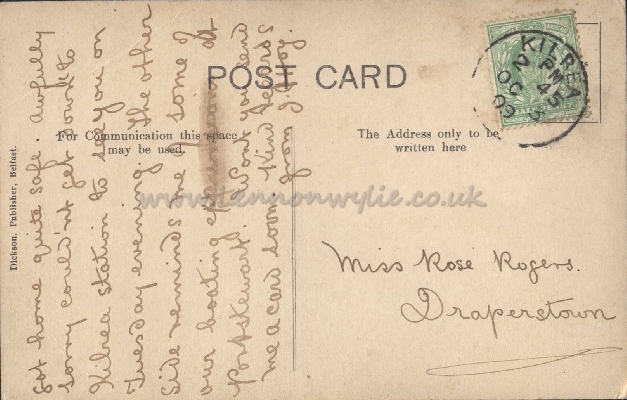 POST CARD
For Communication this space
may be used.
The Address only to be
written here
Dickson, Publisher, Belfast.
KILREA
PM
2 45
OC 3
09
www.lennonwylie.co.uk
Got home quite safe. Awfully
sorry could'nt get down to
Kilrea station to see you on
Tuesday evening. The other
side reminds me of some of
our boating at
Portstewart. Wont you send
me a card soon. Kind regards
from
Miss Rose Rogers.
Draperstown